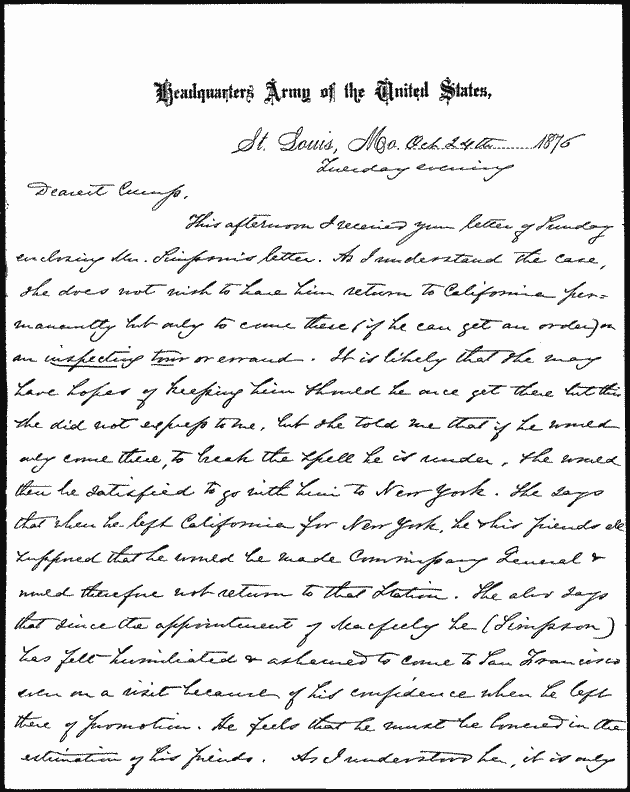 Headquarters Army of the United States,
St. Louis, Mo. Oct. 24th 1876
Tuesday evening
Dearest Cump,
This afternoon I received your letter of Sunday
enclosing Mr. Simpson's letter. As I understand the case,
she does not wish to have him return to California per=
manantly but only to come there (if he can get an order) on
an inspecting tour or errand. It is likely that she may
have hopes of keeping him should he once get there but this
she did not express to me, but she told me that if he would
only come there, to break the spell he is under, she would
then be satisfied to go with him to New York. She says
that when he left California for New York, he & his friends all
supposed that he would be made Commissary General &
would therefore not return to that Station. She also says
that since the appointment of Macfeely he (Simpson)
has felt humiliated & ashamed to come to San Francisco
even on a visit because of his confidence when he left
there of promotion. He feels that he must be lowered in the
estimation of his friends. As I understood her, it is only